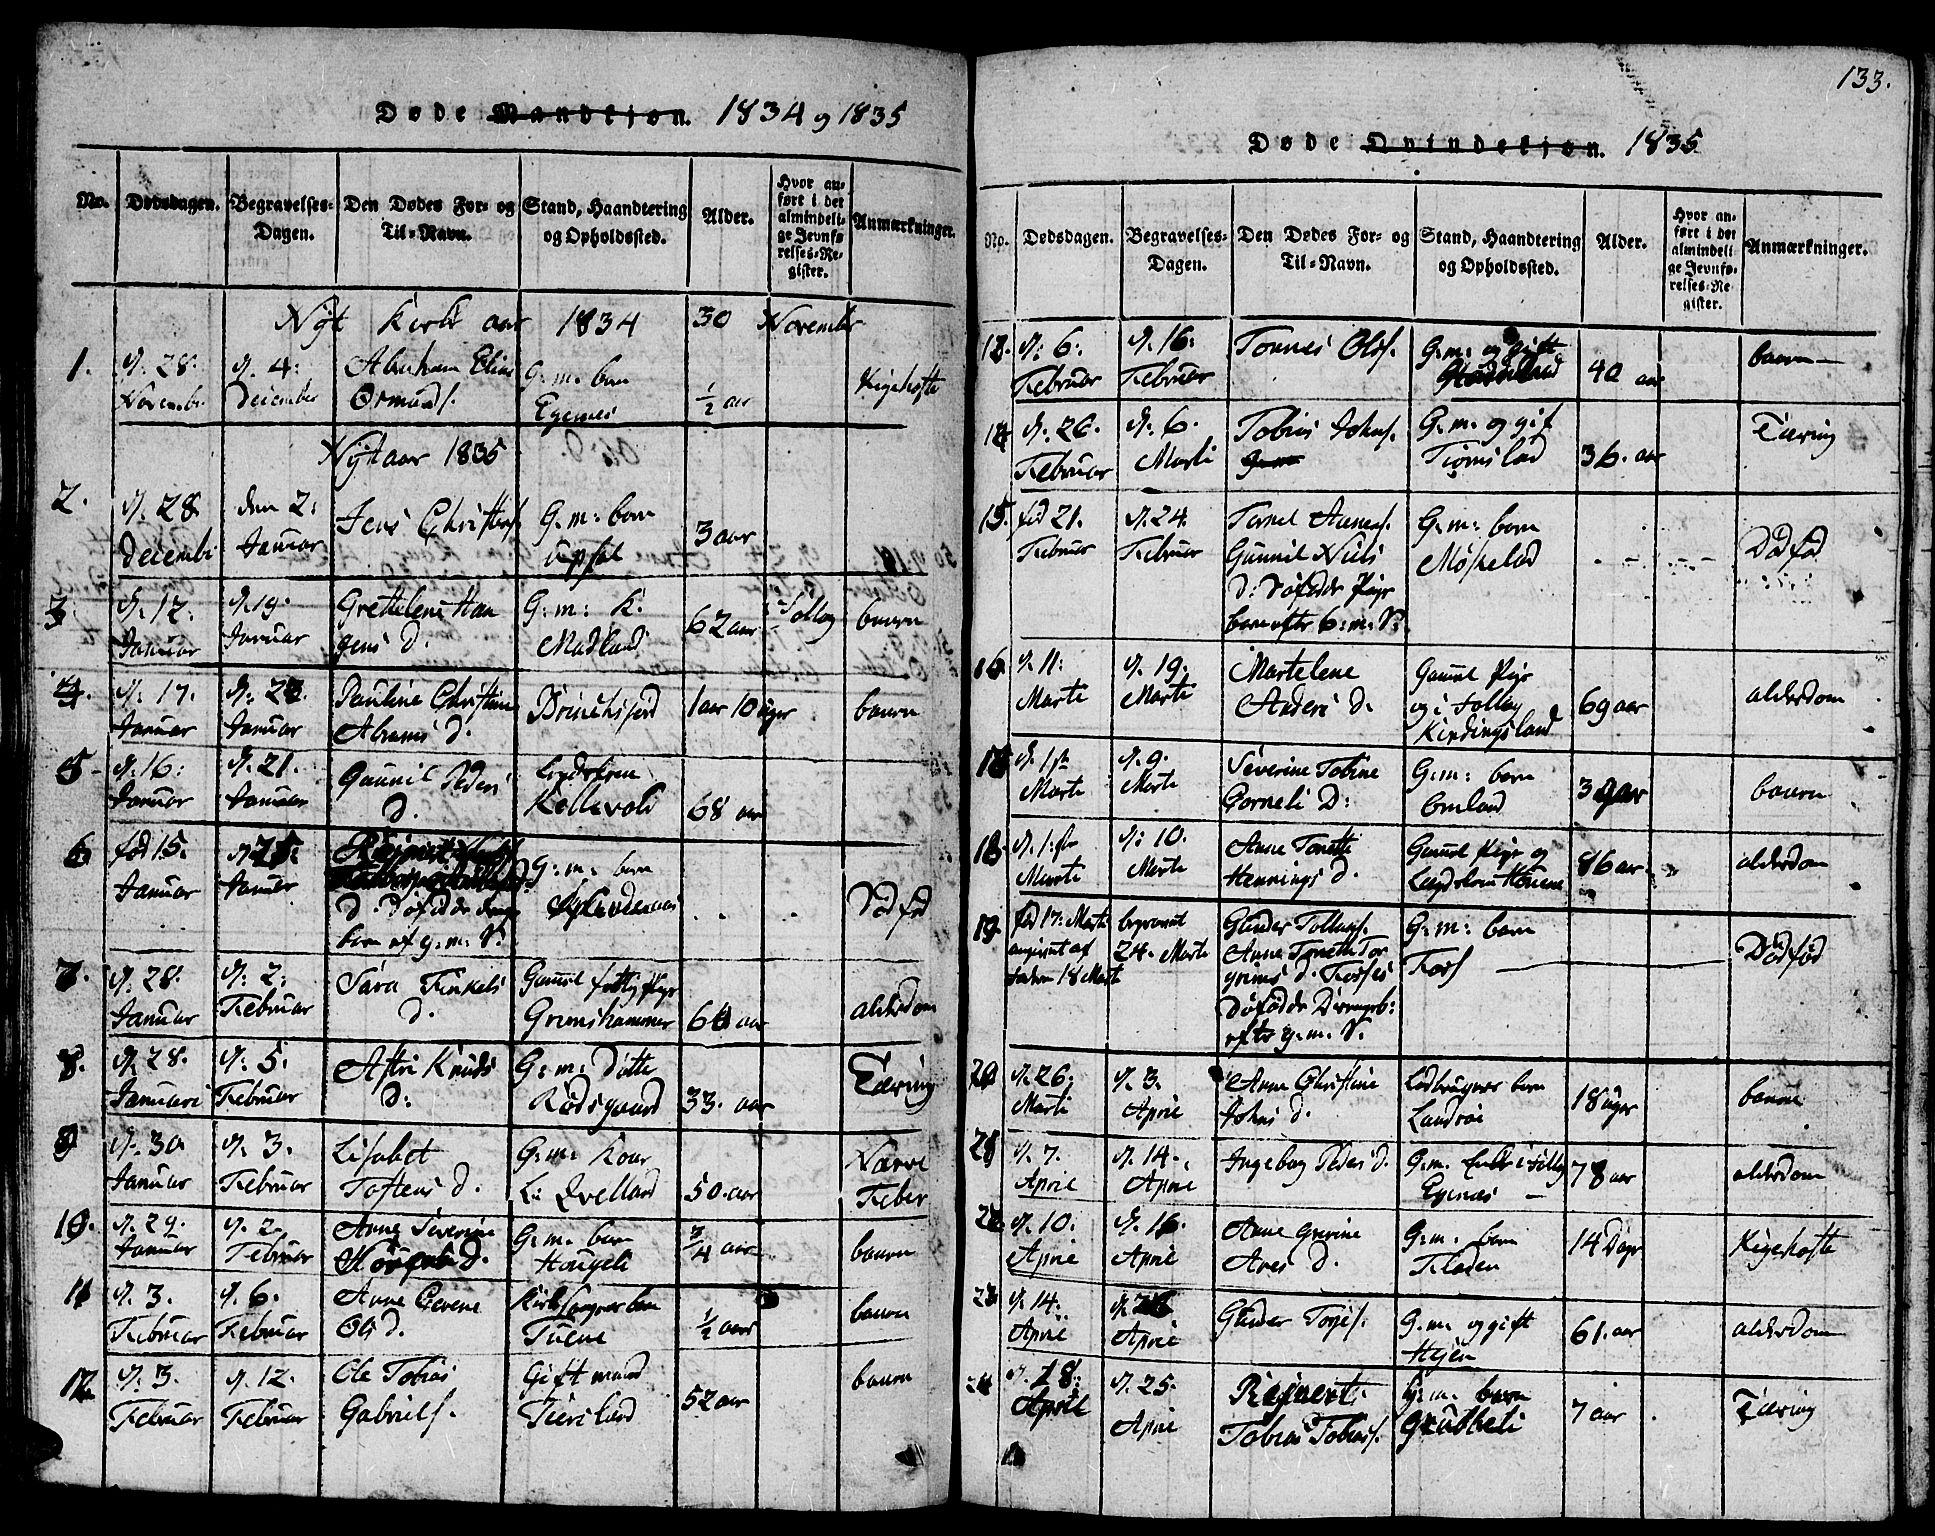 Døde Mandkjøn. 1834 og 1835
No.
Dødsdagen.
Begravelses-
Dagen.
Den Dødes For- og
Til-Navn.
Stand, Haandtering
og Opholdssted.
Alder.
Hvor an-
ført i det
almindeli-
ge Jevnfø-
relses-Re-
gister.
Anmærkninger.
Nÿt Kirke aar 1834 30 November
1.
d. 28.
Novembr
d. 4.
December
Abraham Elias
Ormunds.
G: m: bon
Egenes
1/2 aar
Kigehoste
Nÿtaar 1835
2.
d. 28
Decembr
den 2:
Januar
Jens Christens.
G: m: born
upsal
3 aar
3.
d. 12.
Januar
d. 19.
Januar
Grethelene Han
gens D.
G: m: K.
Madland
62 aar
Follog
bavrn
4.
d. 17.
Januar
d. 23.
Januar
Pauline Christine
Abrams D.
1 aar 10 üger
bavrn
5
d. 16:
Januar
d. 21.
Januar
Gunnil Peders
D.
Kellevold
68 aar
6
fød 15.
Januar
d 25.
Januar
D. Døfødde
born af g: m: V:
G: m: born
Død fød
7.
d. 28.
Januar
d. 2:
Februar
Sara Tinkels
D.
Gammel fattig Pige
Grimshammer
64 aar
alderdom
8.
d. 28.
Januari
d. 5.
Februar
Astri Knuds
D:
G: m: Datte
Rødsgaard
33. aar
Tæring
9
d. 30
Januar
d. 3.
Februar
Lisabet
Toftens D.
G: m: Koar
L: Qvelland
50. aar
Nærve
Feber
10.
d. 29.
Januar
d. 2.
Februar
Anne Severine
D.
G: m. born
Hougeli
3/4 aar
bavrn
11
d. 3.
Februar
d. 6.
Februar
Anne Gevene
Ols D.
Kirkesanger born
Tuene
1/2 aar
bavrn
12
d. 3.
Februar
d. 12.
Februar
Ole Tobias
Gabriels.
Gift mand
Tiersland
52 aar
bavrn
133.
Døde Qvindekjøn. 1835
No.
Dødsdagen.
Begravelses-
Dagen.
Den Dødes For- og
Til-Navn.
Stand, Haandtering
og Opholdssted.
Alder.
Hvor an-
ført i det
almindeli-
ge Jevnfø-
relses-Re-
gister.
Anmærkninger.
13.
d. 6:
Februar
d. 16.
Februar
Tønnes Ols.
G: m: og gift
40 aar
bavrn
14
d. 26.
Februar
d. 6.
Marti
Tobias Johns.
G: m: og gif
Tiømsland
36. aar
Tæring
15.
fød 21.
Februar
d. 24.
Februar
Tarnel Aanens.
Gunnil Niels
D: Døfødde Pige
born efter G: m: V:
G: m: born
Møskeland
Død fød
16
d. 11:
Marti
d. 19.
Marti
Martelene
Anders D.
Gammel Pige
og i Follog
Kindingsland
69 aar
alderdom
d. 1ste
Marti
d. 9.
Marti
Severine Tobine
Gorneli D:
G: m: born
Omland
3 aar
bavrn
18.
d. 1.ste
Marti
d: 10.
Marti
Anne Tonette
Hennings D.
Gammel Pige og
86 aar
alderdom
19
fød 17: Marti
angivet af
faderen 18 Marti
begravet
24. Marti
Gunder Tollags.
Anne Toneth Tor
grims D.
Døfødde Drengeb:
efter g: m: V.
G: m: born
Fors
Død fød
20
d. 26.
Marti
d. 3.
Aprie
Anne Christine
Johns D.
born
Landrøe
18 üger
bavrn
21
d. 7.
Aprie
d. 14.
Aprie
Ingebog Peders D.
G: m. Enke i follog
Egenes
78 aar
alderdom
22
d. 10.
Aprie
d. 16.
Aprie
Anne Grurine
Ares D.
G: m: born
Fladen
14 Dage
Kigehoste
23
d. 14.
Aprie
Aprie
Gunder Torjes.
G: m: og gift
Hejen
61. aar
alderdom
24
d. 18:
Aprie
d. 25.
Aprie
Rejnert
Tobias Tobias.
G: m: born
Grutheli
7 aar
Tæring